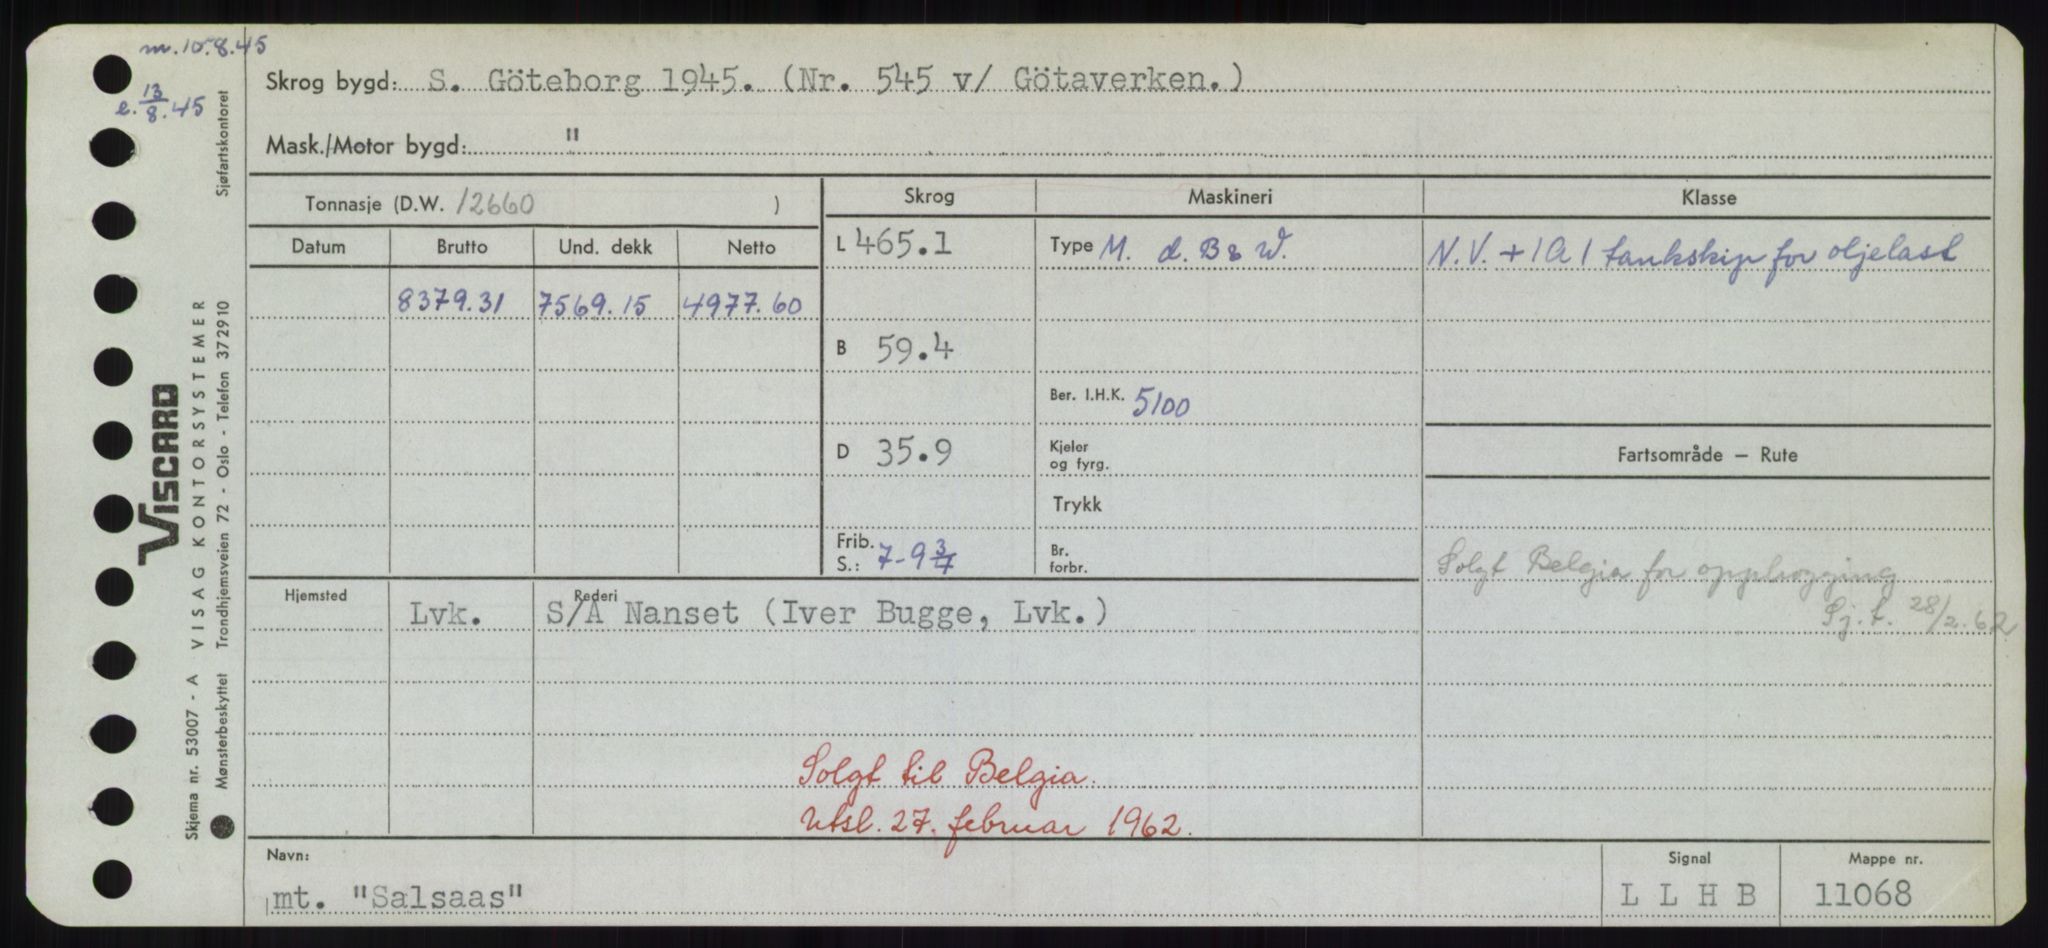 m. 10.8.45
e. 13/8.45
Skrog bygd: S. Göteborg 1945. (Nr. 545 v/ Götaverken.)
Mask./Motor bygd: "
Tonnasje (D.W. 12660 )
Datum Brutto Und. dekk Netto
8379.31 7569.15 4977.60
Skrog Maskineri Klasse
L 465.1 Type M. d. B & W. N.V. + 1A1 tankskip for oljelast
B 59.4
Ber. I.H.K. 5100
D 35.9 Kjeler
og fyrg.
Fartsområde — Rute
Trykk
Frib.
S.: 7-9 3/4 Br.
forbr.
Solgt Belgia for opphogging
Sj.t. 28/2.62
Hjemsted Rederi
Lvk. S/A Nanset (Iver Bugge, Lvk.)
Solgt til Belgia.
Utsl. 27. februar 1962.
Navn: Signal Mappe nr.
mt. "Salsaas" L L H B 11068
VISCARD
VISAG KONTORSYSTEMER
Sjøfartskontoret
Trondhjemsveien 72 - Oslo - Telefon 372910
Skjema nr. 53007 - A
Mønsterbeskyttet